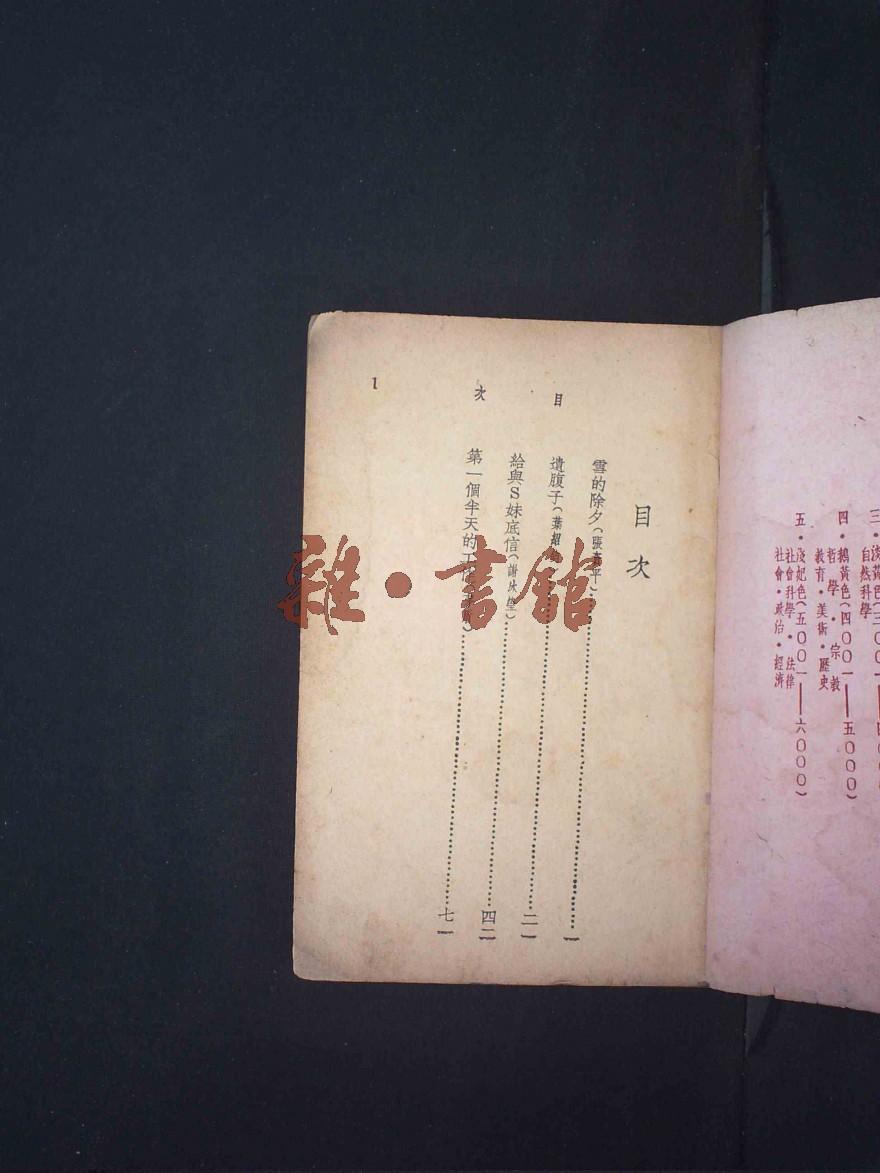 三・淺黃色(三〇〇一——四〇〇
自然科學
四・鵝黃色(四〇〇一——五〇〇〇)
哲學・宗教
教育・美術・歷史
五・淺妃色(五〇〇一——六〇〇〇)
社會科學・法律
社會・政治・經濟
目次
雪的除夕(張資平)……一
遺腹子(葉紹……二一
給與S妹底信(謝……四二
第一個半天的工作……七一
目次
1
雜・書館